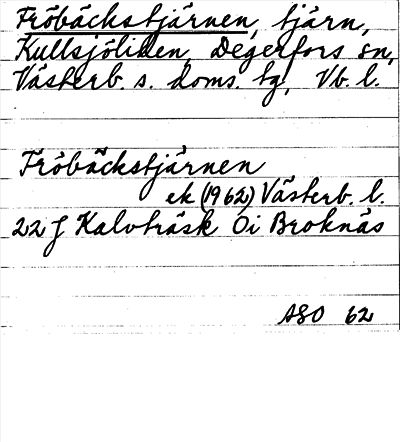 Fröbäckstjärnen, tjärn,
Kullsjöliden, Degerfors sn,
Västerb. s. doms. tg, Vb. l.
Fröbäckstjärnen
ek (1962) Västerb. l.
22 J Kalvträsk 0i Broknäs
ASO 62